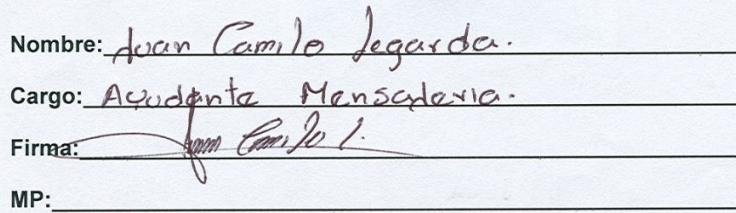 Nombre: Juan Camilo Legarda.
Cargo: Ayudante Mensajeria.
Firma: Juan Camilo L.
MP: